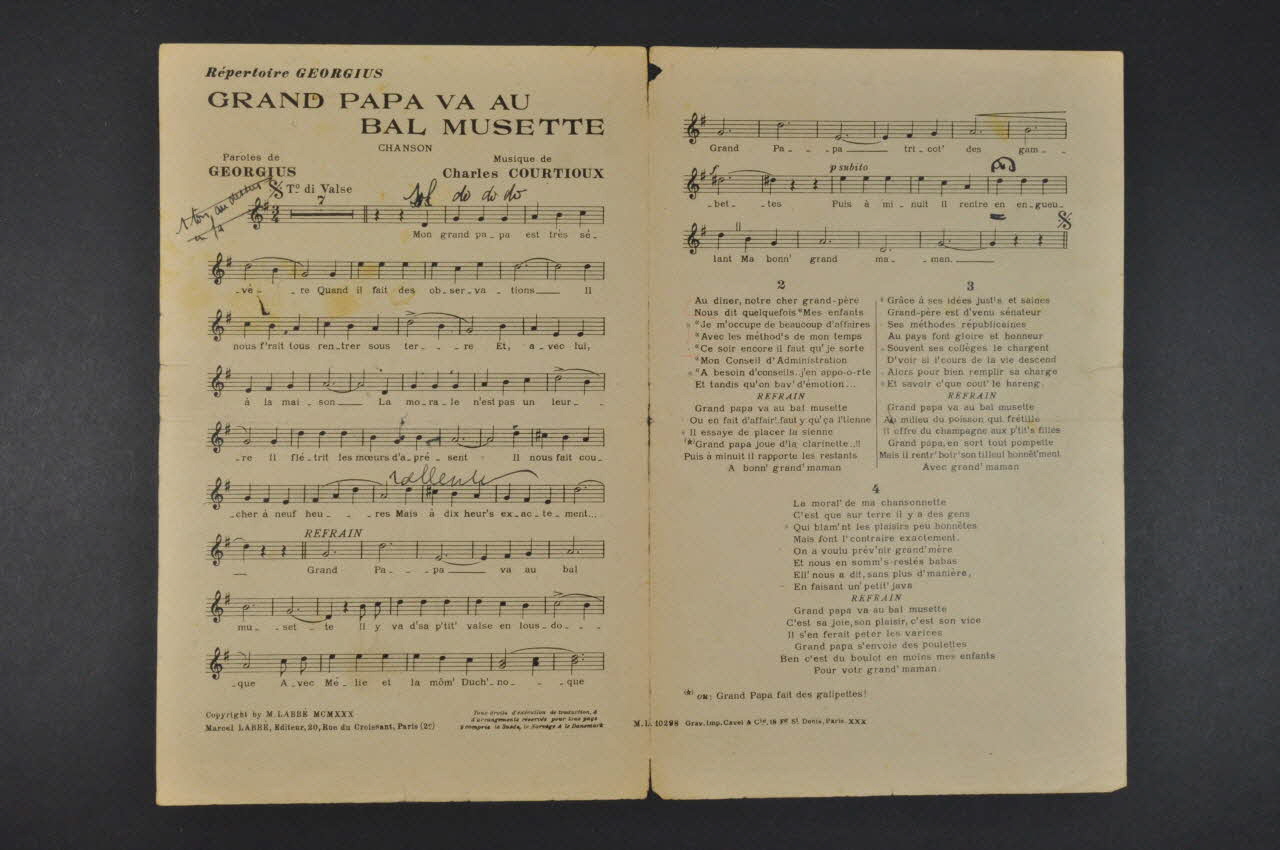 Répertoire GEORGIUS
GRAND PAPA VA AU
BAL MUSETTE
CHANSON
Paroles de
GEORGIUS
Musique de
Charles COURTIOUX
1 ton au dessus
Tº di Valse
7
do do do
Mon grand pa_pa est très sé_
_vè_ _re Quand il fait des ob_ser_va_tions___ Il
nous f'rait tous ren_trer sous ter_ _ _re Et, a_vec lui,
à la mai_son___ La mo_ra_le n'est pas un leur_
_re Il flé_trit les mœurs d'a_pré_sent Il nous fait cou_
rallente
_cher à neuf heu_ _ _res Mais à dix heur's ex_ac_te_ment...
REFRAIN
Grand Pa_ _pa___ va au bal
mu_ _set_ _te Il y va d'sa p'tit' valse en lous_do_ _ _
_que A_vec Mé_lie et la môm' Duch'_no_ _que
Copyright by M. LABBÉ MCMXXX
Marcel LABBÉ, Editeur, 20, Rue du Croissant, Paris (2º)
Tous droits d'exécution de traduction, &
d'arrangements réservés pour tous pays
y compris la Suède, la Norvège & le Danemark
Grand Pa_ _pa___ tri_cot' des gam_ _
p subito
_bet_ _tes Puis à mi_nuit il rentre en en_gueu_
lant Ma bonn' grand ma_ _man.___
2
Au dîner, notre cher grand-père
Nous dit quelquefois "Mes enfants
"Je m'occupe de beaucoup d'affaires
"Avec les méthod's de mon temps
"Ce soir encore il faut qu'je sorte
"Mon Conseil d'Administration
"A besoin d'conseils..j'en appo-o-rte
Et tandis qu'on bav' d'émotion...
REFRAIN
Grand papa va au bal musette
Ou en fait d'affair' faut y qu'ça l'tienne
Il essaye de placer la sienne
(*) Grand papa joue d'la clarinette..!!
Puis à minuit il rapporte les restants
A bonn' grand'maman
3
Grâce à ses idées just's et saines
Grand-père est d'venu sénateur
Ses méthodes républicaines
Au pays font gloire et honneur
Souvent ses collèges le chargent
D'voir si l'cours de la vie descend
Alors pour bien remplir sa charge
Et savoir c'que cout' le hareng.
REFRAIN
Grand papa va au bal musette
Au milieu du poisson qui frétille
Il offre du champagne aux p'tit's filles
Grand papa, en sort tout pompette
Mais il rentr' boir' son tilleul honnêt'ment
Avec grand'maman
4
La moral' de ma chansonnette
C'est que sur terre il y a des gens
Qui blam'nt les plaisirs peu honnêtes
Mais font l'contraire exactement.
On a voulu prév'nir grand'mère
Et nous en somm's restés babas
Ell' nous a dit, sans plus d'manière,
En faisant un' petit' java
REFRAIN
Grand papa va au bal musette
C'est sa joie, son plaisir, c'est son vice
Il s'en ferait peter les varices
Grand papa s'envoie des poulettes
Ben c'est du boulot en moins mes enfants
Pour votr' grand'maman.
(*) OU: Grand Papa fait des galipettes!
M.L. 10298 Grav. Imp. Cavel & Cie, 18 Fg St Denis, Paris. XXX